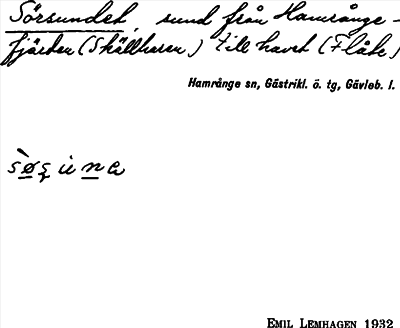 Sörsundet, sund från Hamrånge-
fjärden (Skällharen) till havet (Flåke)
Hamrånge sn, Gästrikl. ö. tg, Gävleb. l.
EMIL LEMHAGEN 1932